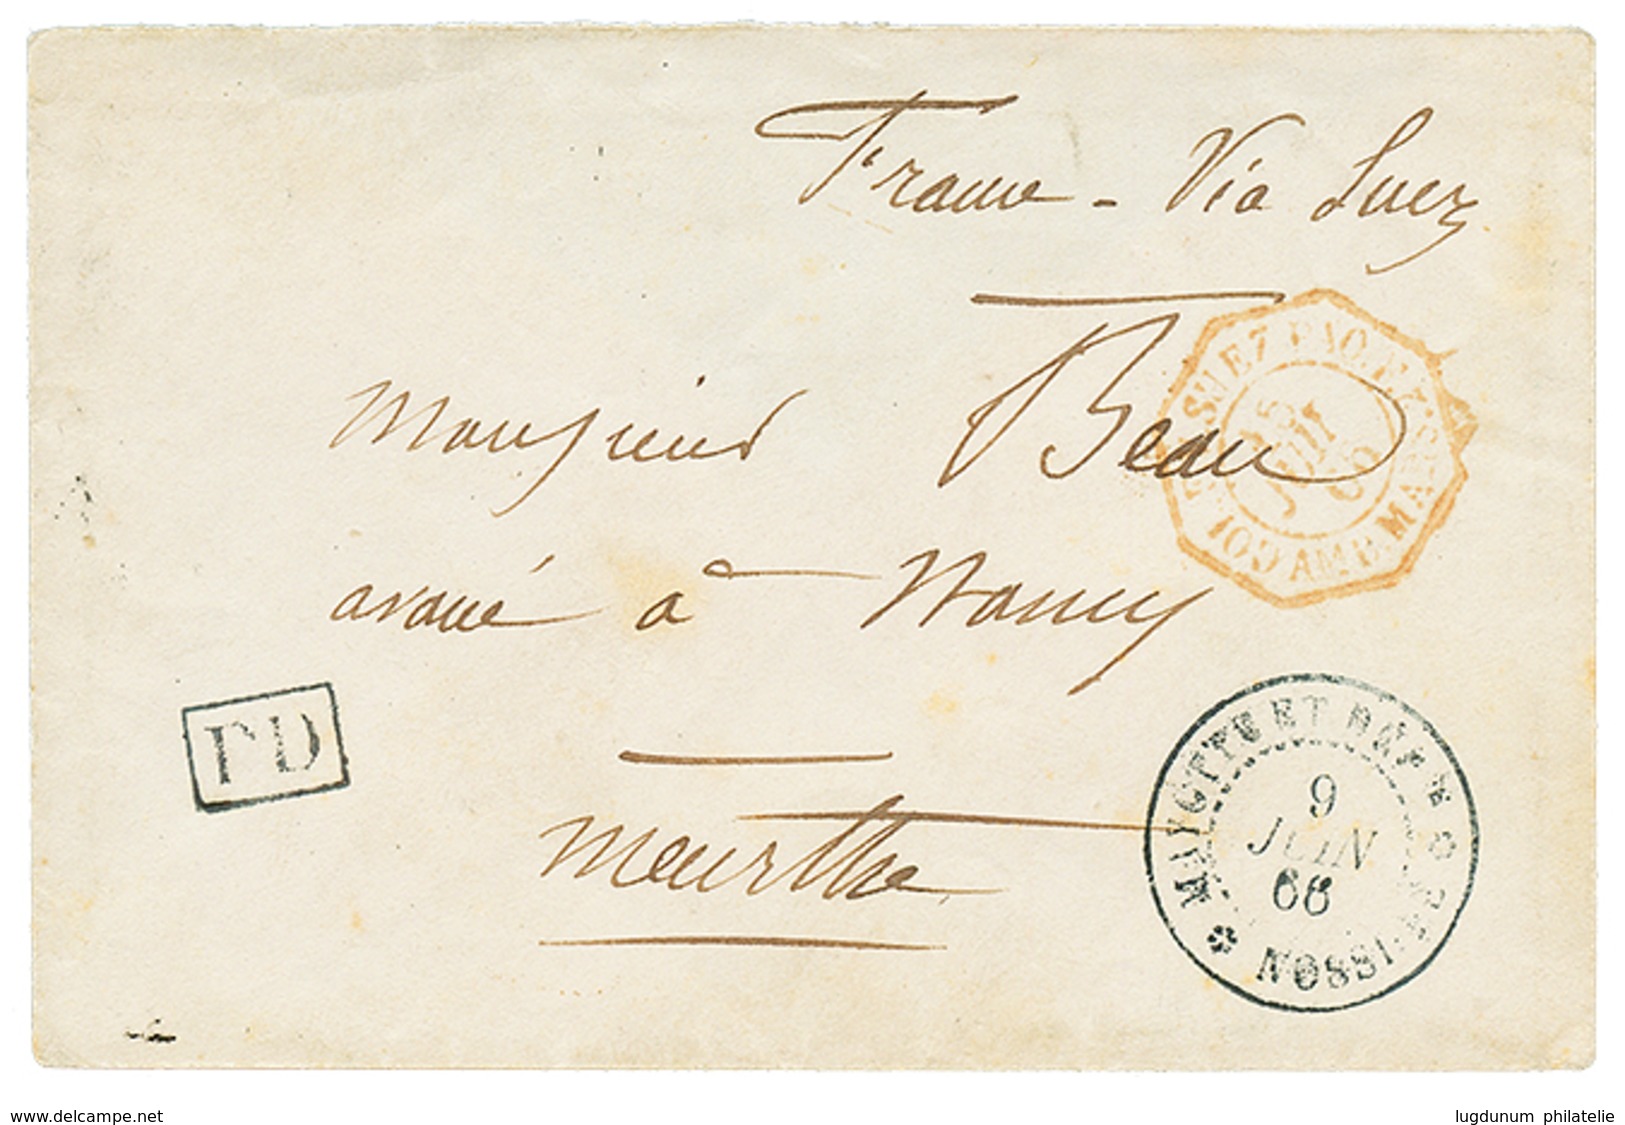 France - Via Suez
Monsieur Beau
avoué à Nancy
Meurthe
PD
SUEZ PAQ. FR.
JUIL
109 AMB. MARS.
MAYOTTE ET DÉP
9
JUIN
66
NOSSI
www.delcampe.net
lugdunum philatelie